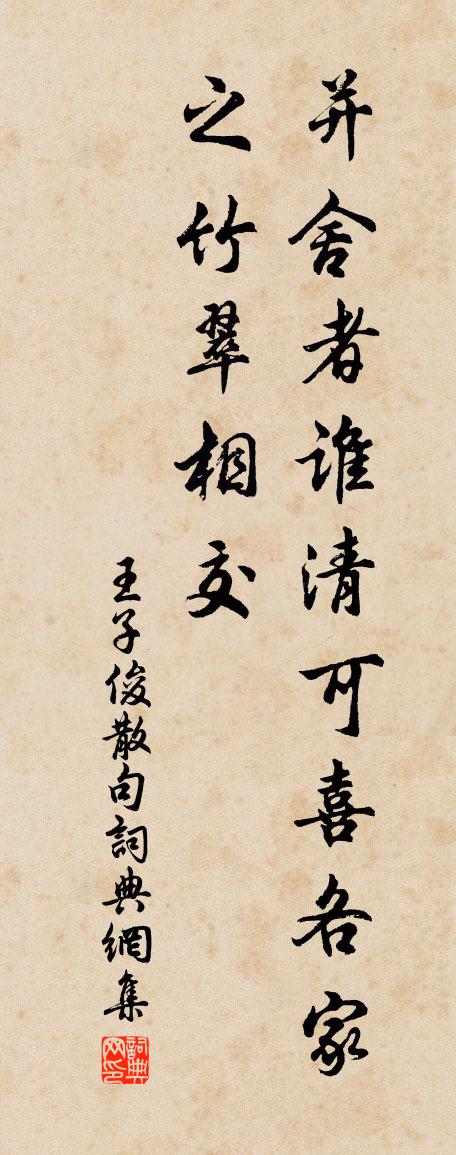 并舍者谁清可喜各家
之竹翠相交
王子俊散句詞典網集
詞典网印